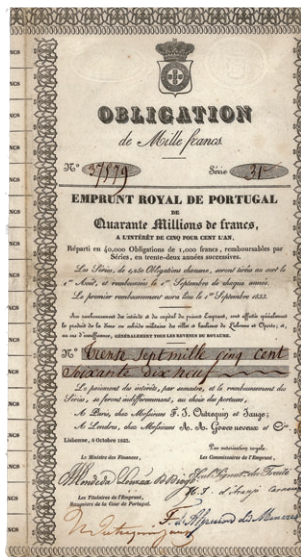 OBLIGATION
de Mille francs
Nº 37579 Série 31e
EMPRUNT ROYAL DE PORTUGAL
DE
Quarante Millions de francs,
A L'INTÉRÊT DE CINQ POUR CENT L'AN,
Réparti en 40,000 Obligations de 1,000 francs, remboursables par
Séries, en trente-deux années successives.
Les Séries, de 1,250 Obligations chacune, seront tirées au sort le
1er Août, et remboursées le 1er Septembre de chaque année.
Le premier remboursement aura lieu le 1er Septembre 1833.
Au remboursement des intérêts et du capital du présent Emprunt, sont affectés spécialement
le produit de la
GÉNÉRALEMENT TOUS LES REVENUS DU ROYAUME.
Nº Trente Sept mille cinq cent
Soixante dix neuf
Le paiement des intérêts, par semestre, et le remboursement des
Séries, se feront indifféremment, au choix du porteur,
A Paris, chez Messieurs F. J. Outrequin et Jauge;
A Londres, chez Messieurs
Lisbonne, 8 Octobre 1832.
Par autorisation royale.
Le Ministre des Finances,
Les Commissaires de l'Emprunt,
Les Titulaires de l'Emprunt,
Banquiers de la Cour de Portugal.